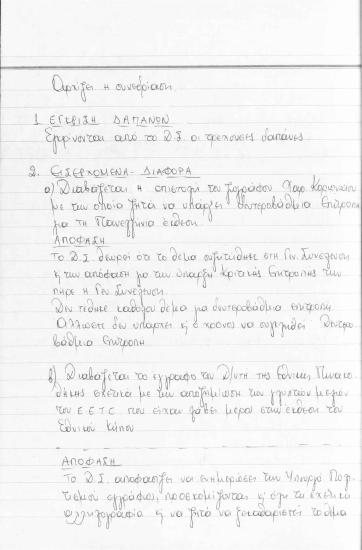 Αρχίζει η συνεδρίαση
1. ΕΓΚΡΙΣΗ ΔΑΠΑΝΩΝ
Εγκρίνονται από το Δ.Σ. οι τρέχουσες δαπάνες
2. ΕΙΣΕΡΧΟΜΕΝΑ - ΔΙΑΦΟΡΑ
α) Διαβάζεται η επιστολή του ζωγράφου Χαρ.
με την οποία ζητά να υπάρξει δευτεροβάθμια επιτροπή
για τη Πανελλήνια έκθεση.
ΑΠΟΦΑΣΗ
Το Δ.Σ. θεωρεί ότι το θέμα συζητήθηκε στη Γεν. Συνέλευση
κ την απόφαση για την ύπαρξη Κριτικής Επιτροπής την
πήρε η Γεν. Συνέλευση.
Δεν τέθηκε καθόλου θέμα για δευτεροβάθμια επιτροπή.
Άλλωστε δεν υπάρχει κ ο χρόνος να Δευτερο
βάθμια Επιτροπή.
β) Διαβάζεται το έγγραφο του Δ/ντη της Εθνικής Πινακο
θήκης σχετικά με την αποζημίωση των γλυπτών μελών
του Ε.Ε.Τ.Ε. που είχαν λάβει μέρος στην έκθεση του
Εθνικού Κήπου.
ΑΠΟΦΑΣΗ
Το Δ.Σ. αποφασίζει να ενημερώσει τον Υπουργό Πολι
τισμού εγγράφως, προσκομίζοντας κ όλη τη σχετική
αλληλογραφία κ να ζητά να ξεκαθαριστεί το θέμα